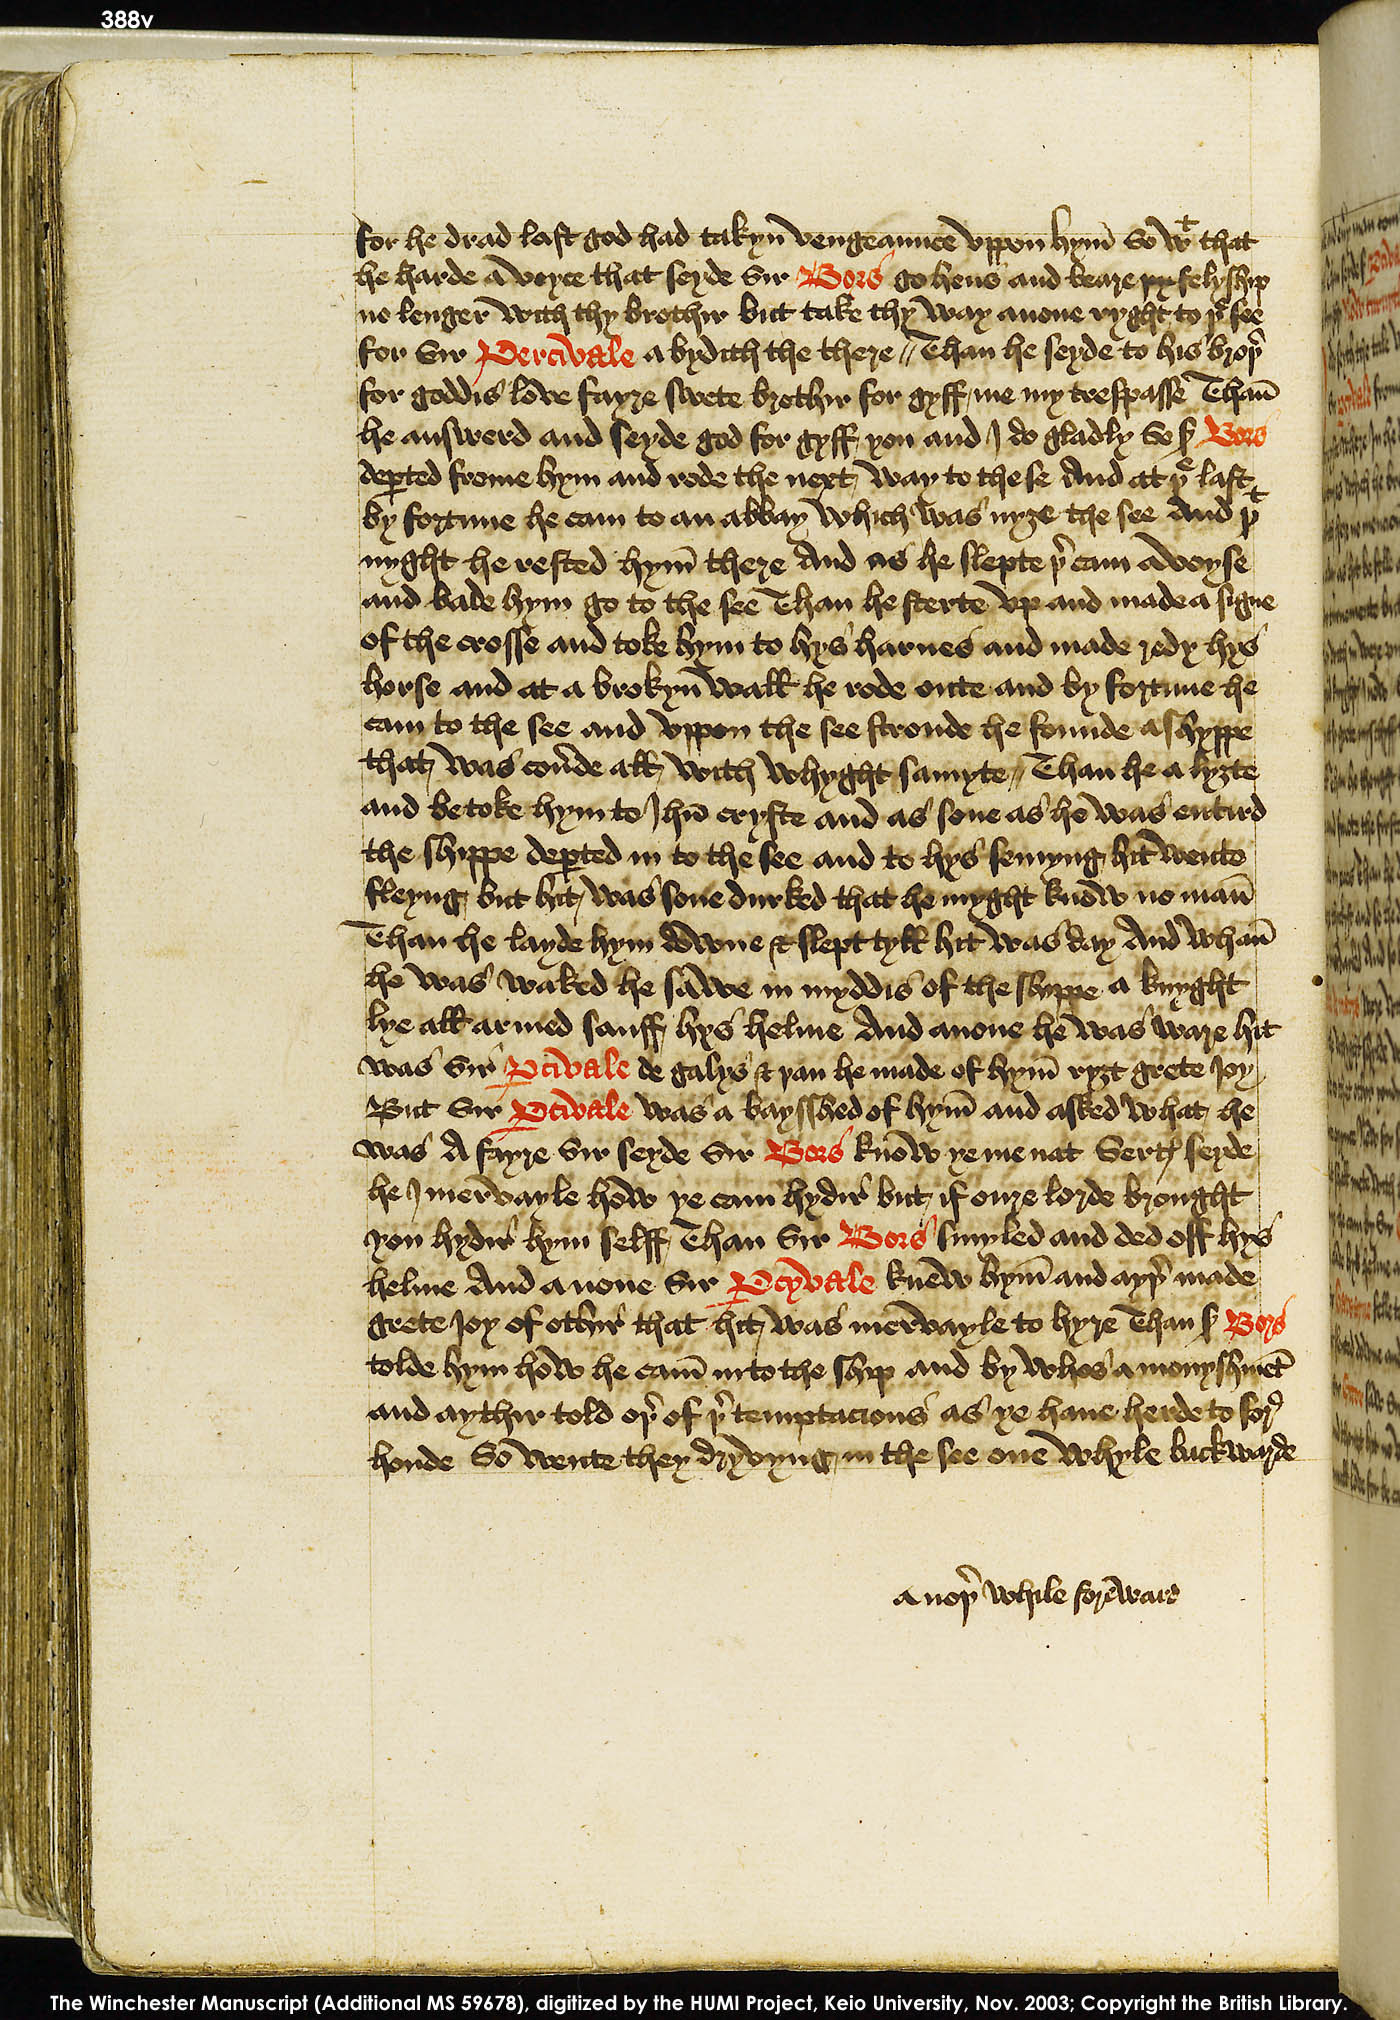 388v
for he drad last god had takyn vengeaunce vppon hym So wt that
he harde a voyce that seyde Sir Bors go hens and beare felyship
no lenger with thy brothir but take thy way anone ryght to þe see
for Sir Percivale a bydith the there // Than he seyde to his broþr
for goddis love fayre swete brothir for gyff me my trespasse Than
he answerd and seyde god for gyff you and I do gladly So sr Bors
depted frome hym and rode the next way to the se And at þe last
by fortune he cam to an abbay which was nyȝe the see And þt
nyght he rested hym there And as he slepte þr cam a voyse
and bade hym go to the see Than he sterte vp and made a signe
of the crosse and toke hym to hys harnes and made redy hys
horse and at a brokyn wall he rode oute and by fortune he
cam to the see and vppon the see stronde he founde a shyppe
that was coude all with whyght samyte // Than he a lyȝte
and betoke hym to Jhu cryste and as sone as he was entird
the shippe depted in to the see and to hys semyng hit wente
fleyng but hit was sone durked that he myght know no man
Than he layde hym downe & slept tyll hit was day And whan
he was waked he sawe in myddis of the shyppe a knyght
lye all armed sauff hys helme And anone he was ware hit
was Sir Pcivale de galys & yan he made of hym ryȝt grete Joy
But Sir Pcivale was a baysshed of hym and asked what he
was A fayre Sir seyde Sir Bors know ye me nat Sertes seyde
he I mervayle how ye cam hydir but if oure lorde brought
you hydir hym selff Than Sir Bors smyled and ded off hys
helme And anone Sir Pcyvale knew hym and ayþr made
grete Joy of othir that hit was mervayle to hyre Than sr Bors
tolde hym how he cam in to the ship and by whos amonyshmet
and aythir told oþr of þr temptacions as ye have herde to for
honde So wente they dryvyng in the see one whyle backwarde
a noþr while forewarde
The Winchester Manuscript (Additional MS 59678), digitized by the HUMI Project, Keio University, Nov. 2003; Copyright the British Library.